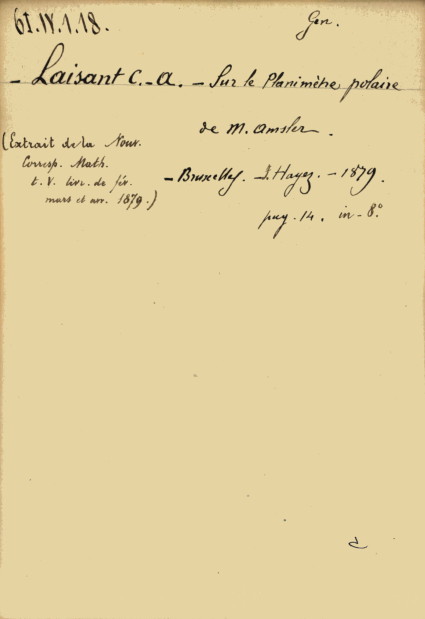 61.IV.1.18.
Gen.
- Laisant C.-A. - Sur le Planimètre polaire
de M. Amsler.
(Extrait de la Nouv.
Corresp. Math.
t. V. livr. de fév.
mars et avr. 1879.)
- Bruxelles. - Hayez. - 1879.
pag. 14. in-8°